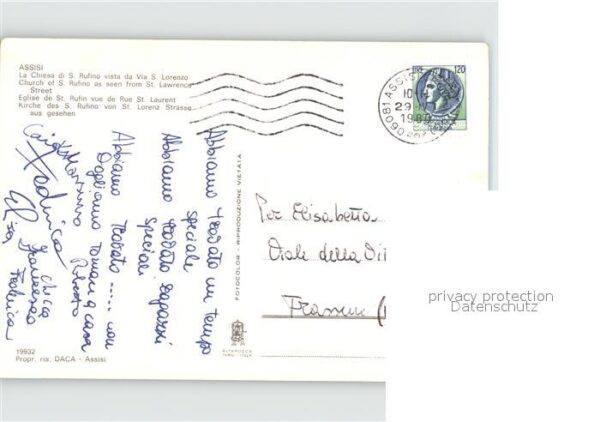 ASSISI
La Chiesa di S. Rufino vista da Via S. Lorenzo
Church of S. Rufino as seen from St. Lawrence
Street
Eglise de St. Rufin vue de Rue St. Laurent
Kirche des S. Rufino von St. Lorenz Strasse
aus gesehen
120
06081 ASSISI
10
29
19
Abbiamo trovato un tempo
speciale
Abbiamo trovato ragazzi
speciali
Abbiamo trovato ..... non
vogliamo tornare a casa
Roberto
Massimo
Federica
Chicca
Francesca
Federica
FOTOCOLOR - RIPRODUZIONE VIETATA
Per Elisabetta
Viale della Di
privacy protection
Datenschutz
19932
Propr. ris. DACA - Assisi